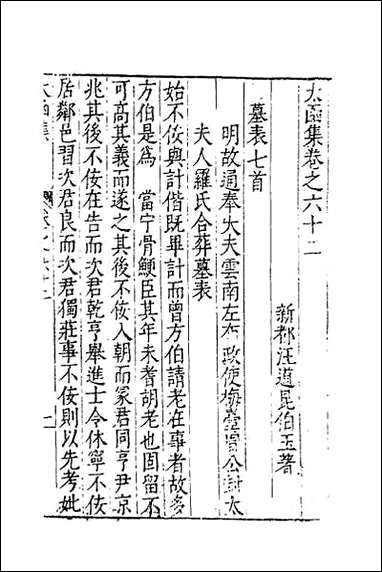 太函集卷之六十二
新都汪道昆伯玉著
墓表七首
明故通奉大夫雲南左布政使梅臺曾公封太
夫人羅氏合葬墓表
始不佞與計偕既畢計而曾方伯請老在事者故多
方伯是爲　當宁骨鯁臣其年未耆胡老也固留不
可高其義而遂之其後不佞入朝而冢君同亨尹京
兆其後不佞在告而次君乾亨舉進士令休寧不佞
居鄰邑習次君良而次君獨莊事不佞則以先考妣
太函集
卷之六十二
一